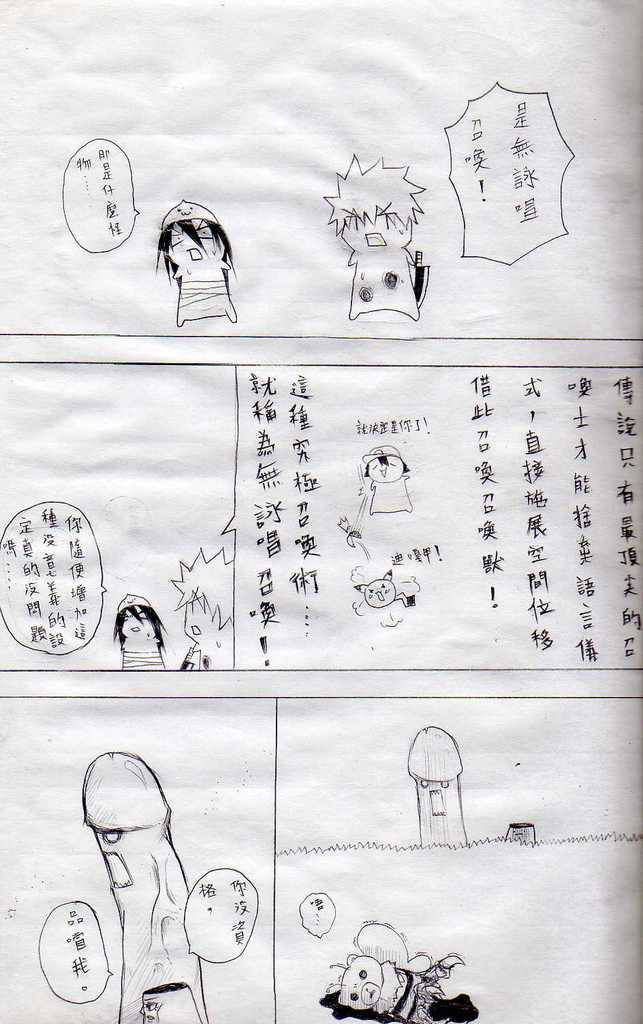 是無詠唱
召喚！
那是什麼怪
物……
傳說只有最頂尖的召
喚士才能捨棄語言儀
式，直接施展空間位移
借此召喚召喚獸！
就決定是你了！
迪嘎甲！
這種究極召喚術…
就稱為無詠唱召喚！
你隨便增加這
種沒意義的設
定真的沒問題
嗎……
唔…
你沒資
格。
品嚐我。